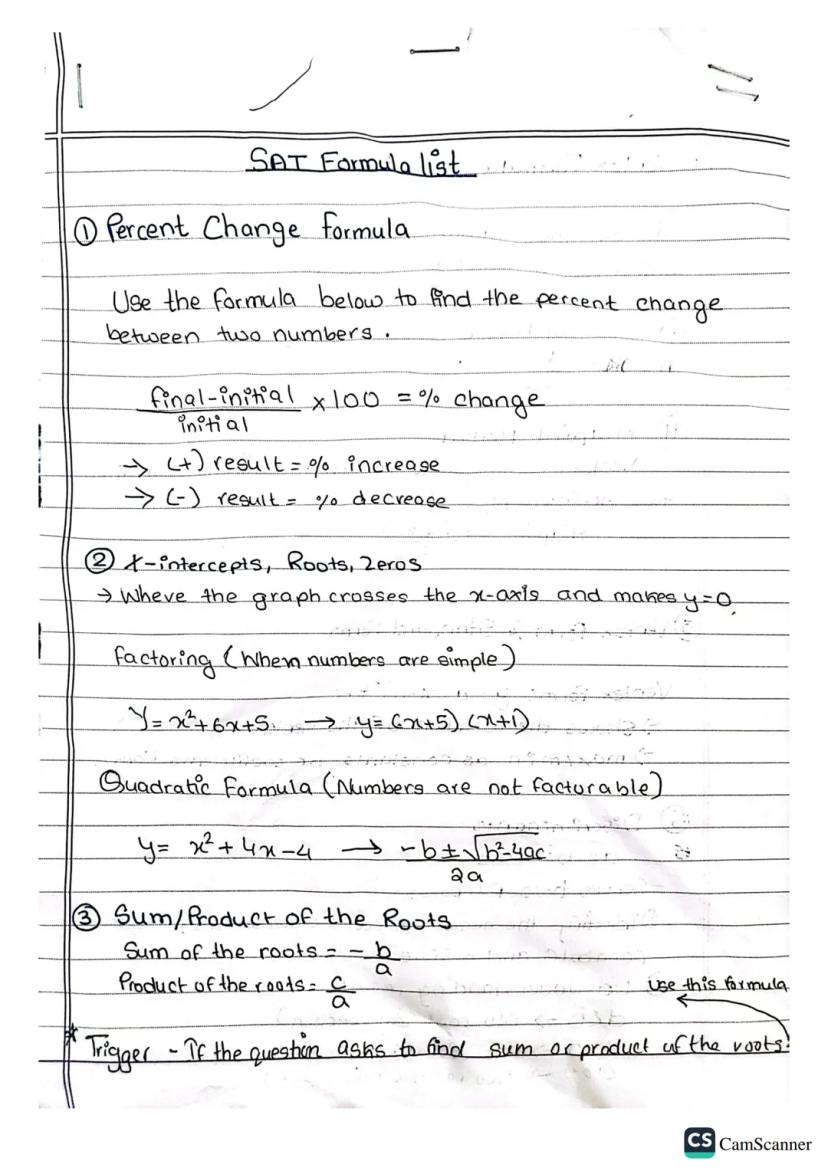 SAT Formula list
① Percent Change formula
Use the formula below to find the percent change
between two numbers.
final-initial / initial × 100 = % change
→ (+) result = % increase
→ (-) result = % decrease
② X-intercepts, Roots, Zeros
→ Where the graph crosses the x-axis and makes y=0.
factoring (When numbers are simple)
Y = x²+6x+5 → y= (x+5) (x+1)
Quadratic Formula (Numbers are not facturable)
y = x² + 4x - 4 → -b ± √b²-4ac / 2a
③ Sum/Product of the Roots
Sum of the roots = - b/a
Product of the roots = c/a
Use this formula
* Trigger - If the question asks to find sum or product of the roots:
CS CamScanner